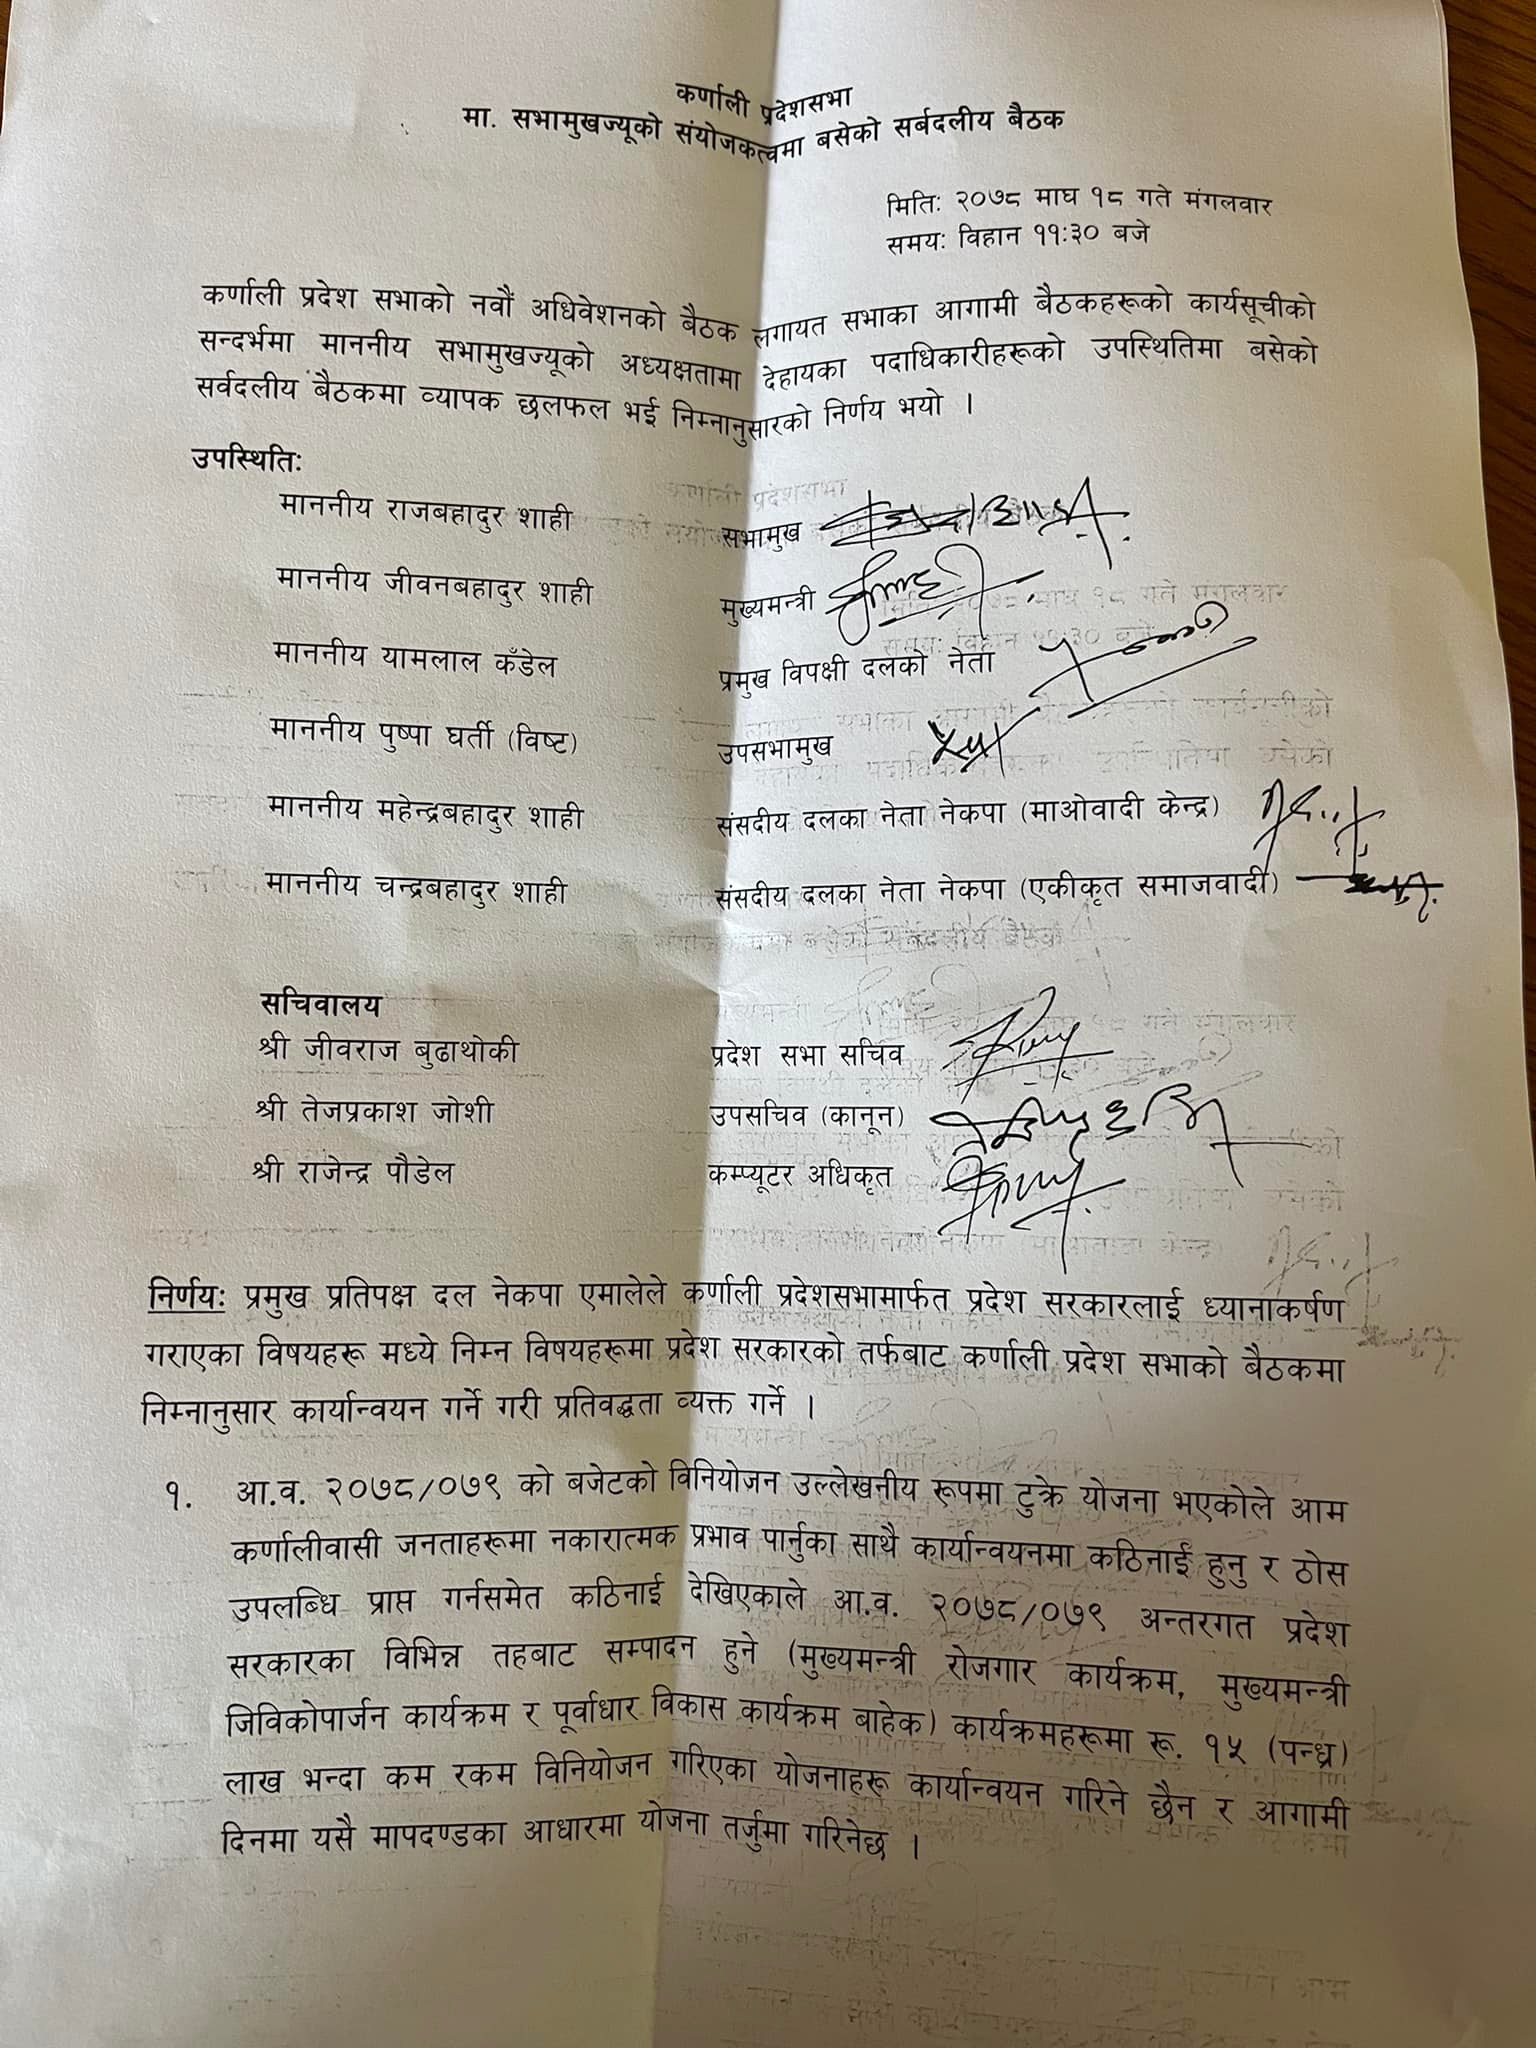 कर्णाली प्रदेशसभा
मा. सभामुखज्यूको संयोजकत्वमा बसेको सर्बदलीय बैठक
मितिः २०७८ माघ १८ गते मंगलवार
समयः विहान ११:३० बजे
कर्णाली प्रदेश सभाको नवौं अधिवेशनको बैठक लगायत सभाका आगामी बैठकहरूको कार्यसूचीको
सन्दर्भमा माननीय सभामुखज्यूको अध्यक्षतामा देहायका पदाधिकारीहरूको उपस्थितिमा बसेको
सर्वदलीय बैठकमा व्यापक छलफल भई निम्नानुसारको निर्णय भयो ।
उपस्थितिः
माननीय राजबहादुर शाही सभामुख
माननीय जीवनबहादुर शाही मुख्यमन्त्री
माननीय यामलाल कँडेल प्रमुख विपक्षी दलको नेता
माननीय पुष्पा घर्ती (विष्ट) उपसभामुख
माननीय महेन्द्रबहादुर शाही संसदीय दलका नेता नेकपा (माओवादी केन्द्र)
माननीय चन्द्रबहादुर शाही संसदीय दलका नेता नेकपा (एकीकृत समाजवादी)
सचिवालय
श्री जीवराज बुढाथोकी प्रदेश सभा सचिव
श्री तेजप्रकाश जोशी उपसचिव (कानून)
श्री राजेन्द्र पौडेल कम्प्यूटर अधिकृत
निर्णयः प्रमुख प्रतिपक्ष दल नेकपा एमालेले कर्णाली प्रदेशसभामार्फत प्रदेश सरकारलाई ध्यानाकर्षण
गराएका विषयहरू मध्ये निम्न विषयहरूमा प्रदेश सरकारको तर्फबाट कर्णाली प्रदेश सभाको बैठकमा
निम्नानुसार कार्यान्वयन गर्ने गरी प्रतिवद्धता व्यक्त गर्ने ।
१. आ.व. २०७८/०७९ को बजेटको विनियोजन उल्लेखनीय रूपमा टुक्रे योजना भएकोले आम
कर्णालीवासी जनताहरूमा नकारात्मक प्रभाव पार्नुका साथै कार्यान्वयनमा कठिनाई हुनु र ठोस
उपलब्धि प्राप्त गर्नसमेत कठिनाई देखिएकाले आ.व. २०७८/०७९ अन्तरगत प्रदेश
सरकारका विभिन्न तहबाट सम्पादन हुने (मुख्यमन्त्री रोजगार कार्यक्रम, मुख्यमन्त्री
जिविकोपार्जन कार्यक्रम र पूर्वाधार विकास कार्यक्रम बाहेक) कार्यक्रमहरूमा रू. १५ (पन्ध्र)
लाख भन्दा कम रकम विनियोजन गरिएका योजनाहरू कार्यान्वयन गरिने छैन र आगामी
दिनमा यसै मापदण्डका आधारमा योजना तर्जुमा गरिनेछ ।